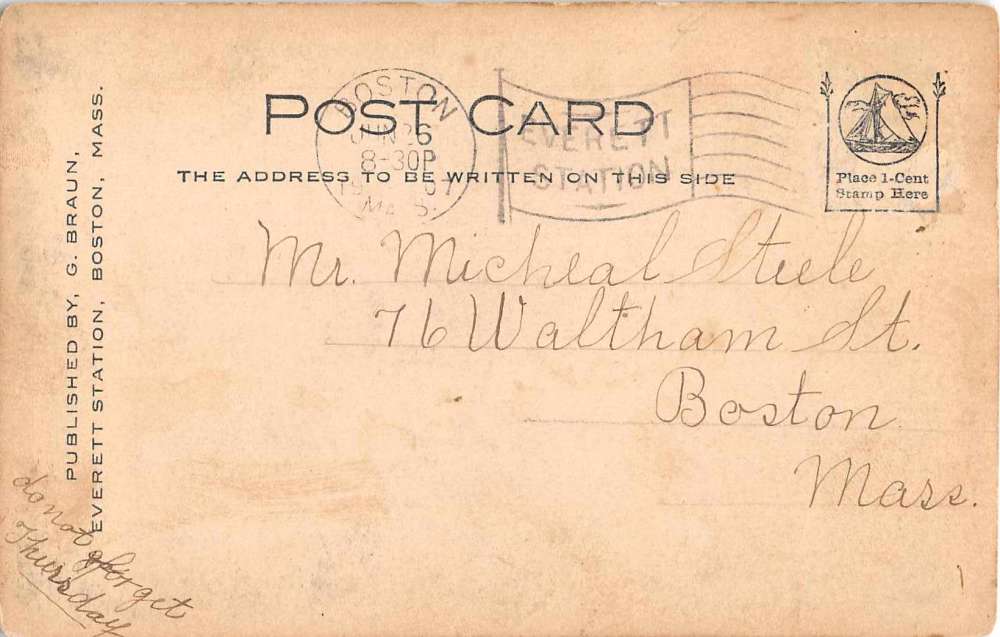 PUBLISHED BY, G. BRAUN,
EVERETT STATION, BOSTON, MASS.
POST CARD
THE ADDRESS TO BE WRITTEN ON THIS SIDE
BOSTON
JUN 26
8-30P
MASS.
EVERETT
STATION
Place 1-Cent
Stamp Here
Mr. Micheal Steele
76 Waltham St.
Boston
Mass.
do not forget
Thursday